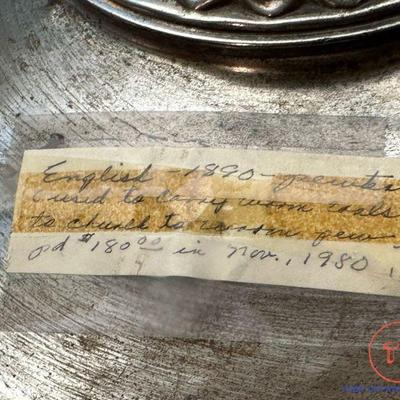 English - 1890 - pewter
(used to carry warm coals
to church to warm pew
pd $180.00 in Nov., 1980